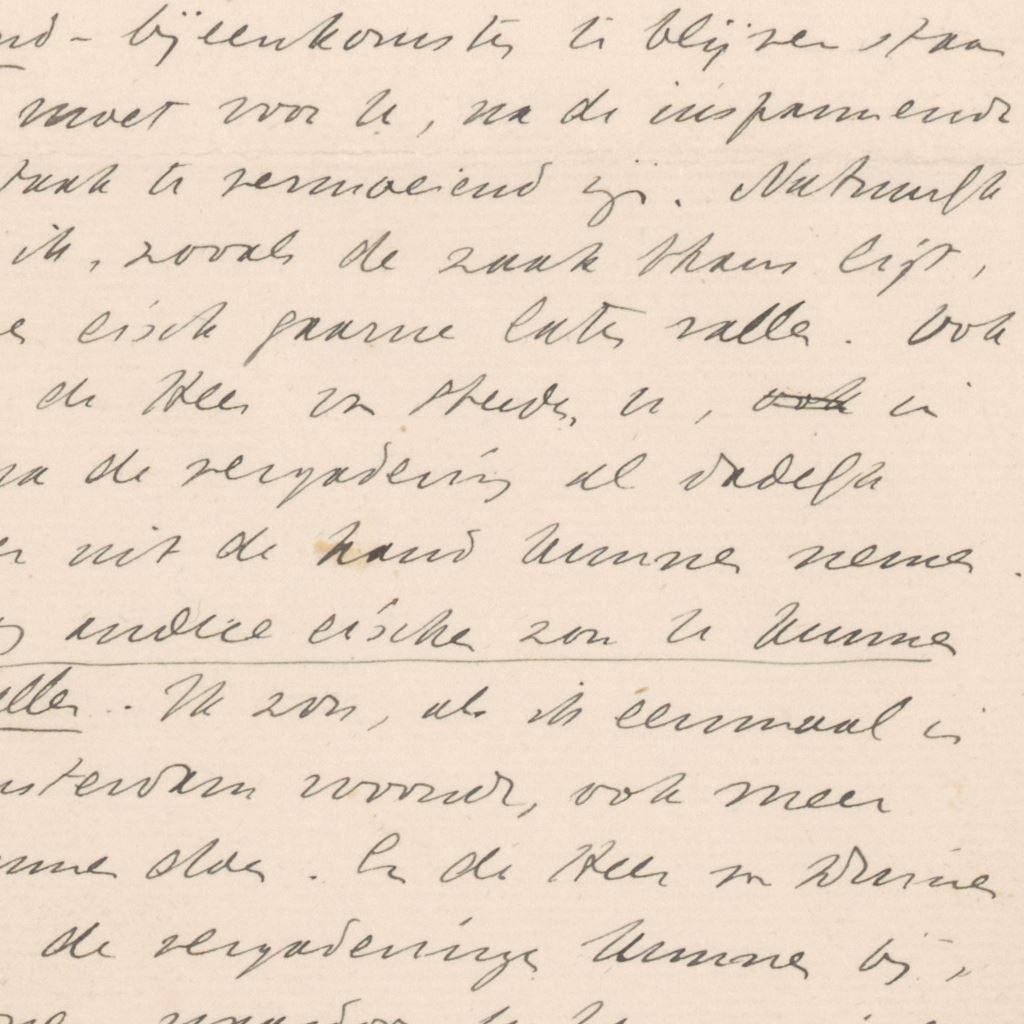 nd-bijeenkomsten te blijven staan
moet voor U, na de inspannende
taak te vermoeiend zijn. Natuurlijk
ik, zooals de zaak thans ligt,
eisch gaarne laten vallen. Ook
de Heer van der U, ook in
na de vergadering al dadelijk
uit de hand kunnen nemen.
andere eischen zou U kunnen
allen. Ik zou, als ik eenmaal in
msterdam woonde, ook meer
unnen doen. En de Heer van
de vergaderingen kunnen bij,